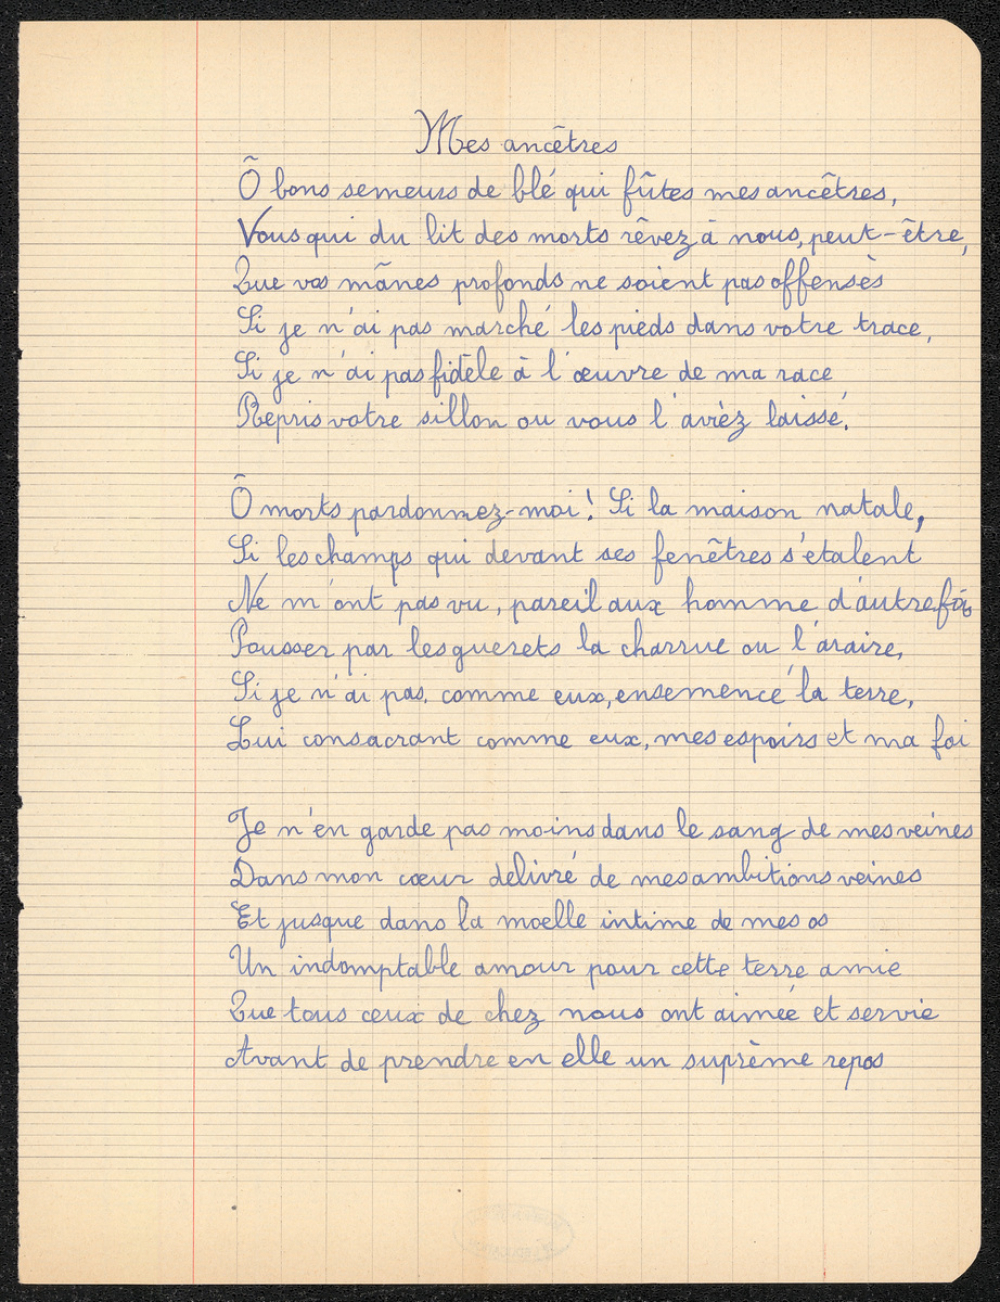 Mes ancêtres
Ô bons semeurs de blé qui fûtes mes ancêtres,
Vous qui du lit des morts rêvez à nous, peut-être,
Que vos mânes profonds ne soient pas offensés
Si je n'ai pas marché les pieds dans votre trace,
Si je n'ai pas fidèle à l'œuvre de ma race
Repris votre sillon ou vous l'avièz laissé.
Ô morts pardonnez-moi! Si la maison natale,
Si les champs qui devant ses fenêtres s'étalent
Ne m'ont pas vu, pareil aux homme d'autrefois
Pousser par les guerets la charrue ou l'araire,
Si je n'ai pas, comme eux, ensemencé la terre,
Lui consacrant comme eux, mes espoirs et ma foi
Je n'en garde pas moins dans le sang de mes veines
Dans mon cœur délivré de mes ambitions veines
Et jusque dans la moelle intime de mes os
Un indomptable amour pour cette terre amie
Que tous ceux de chez nous ont aimée et servie
Avant de prendre en elle un suprème repos